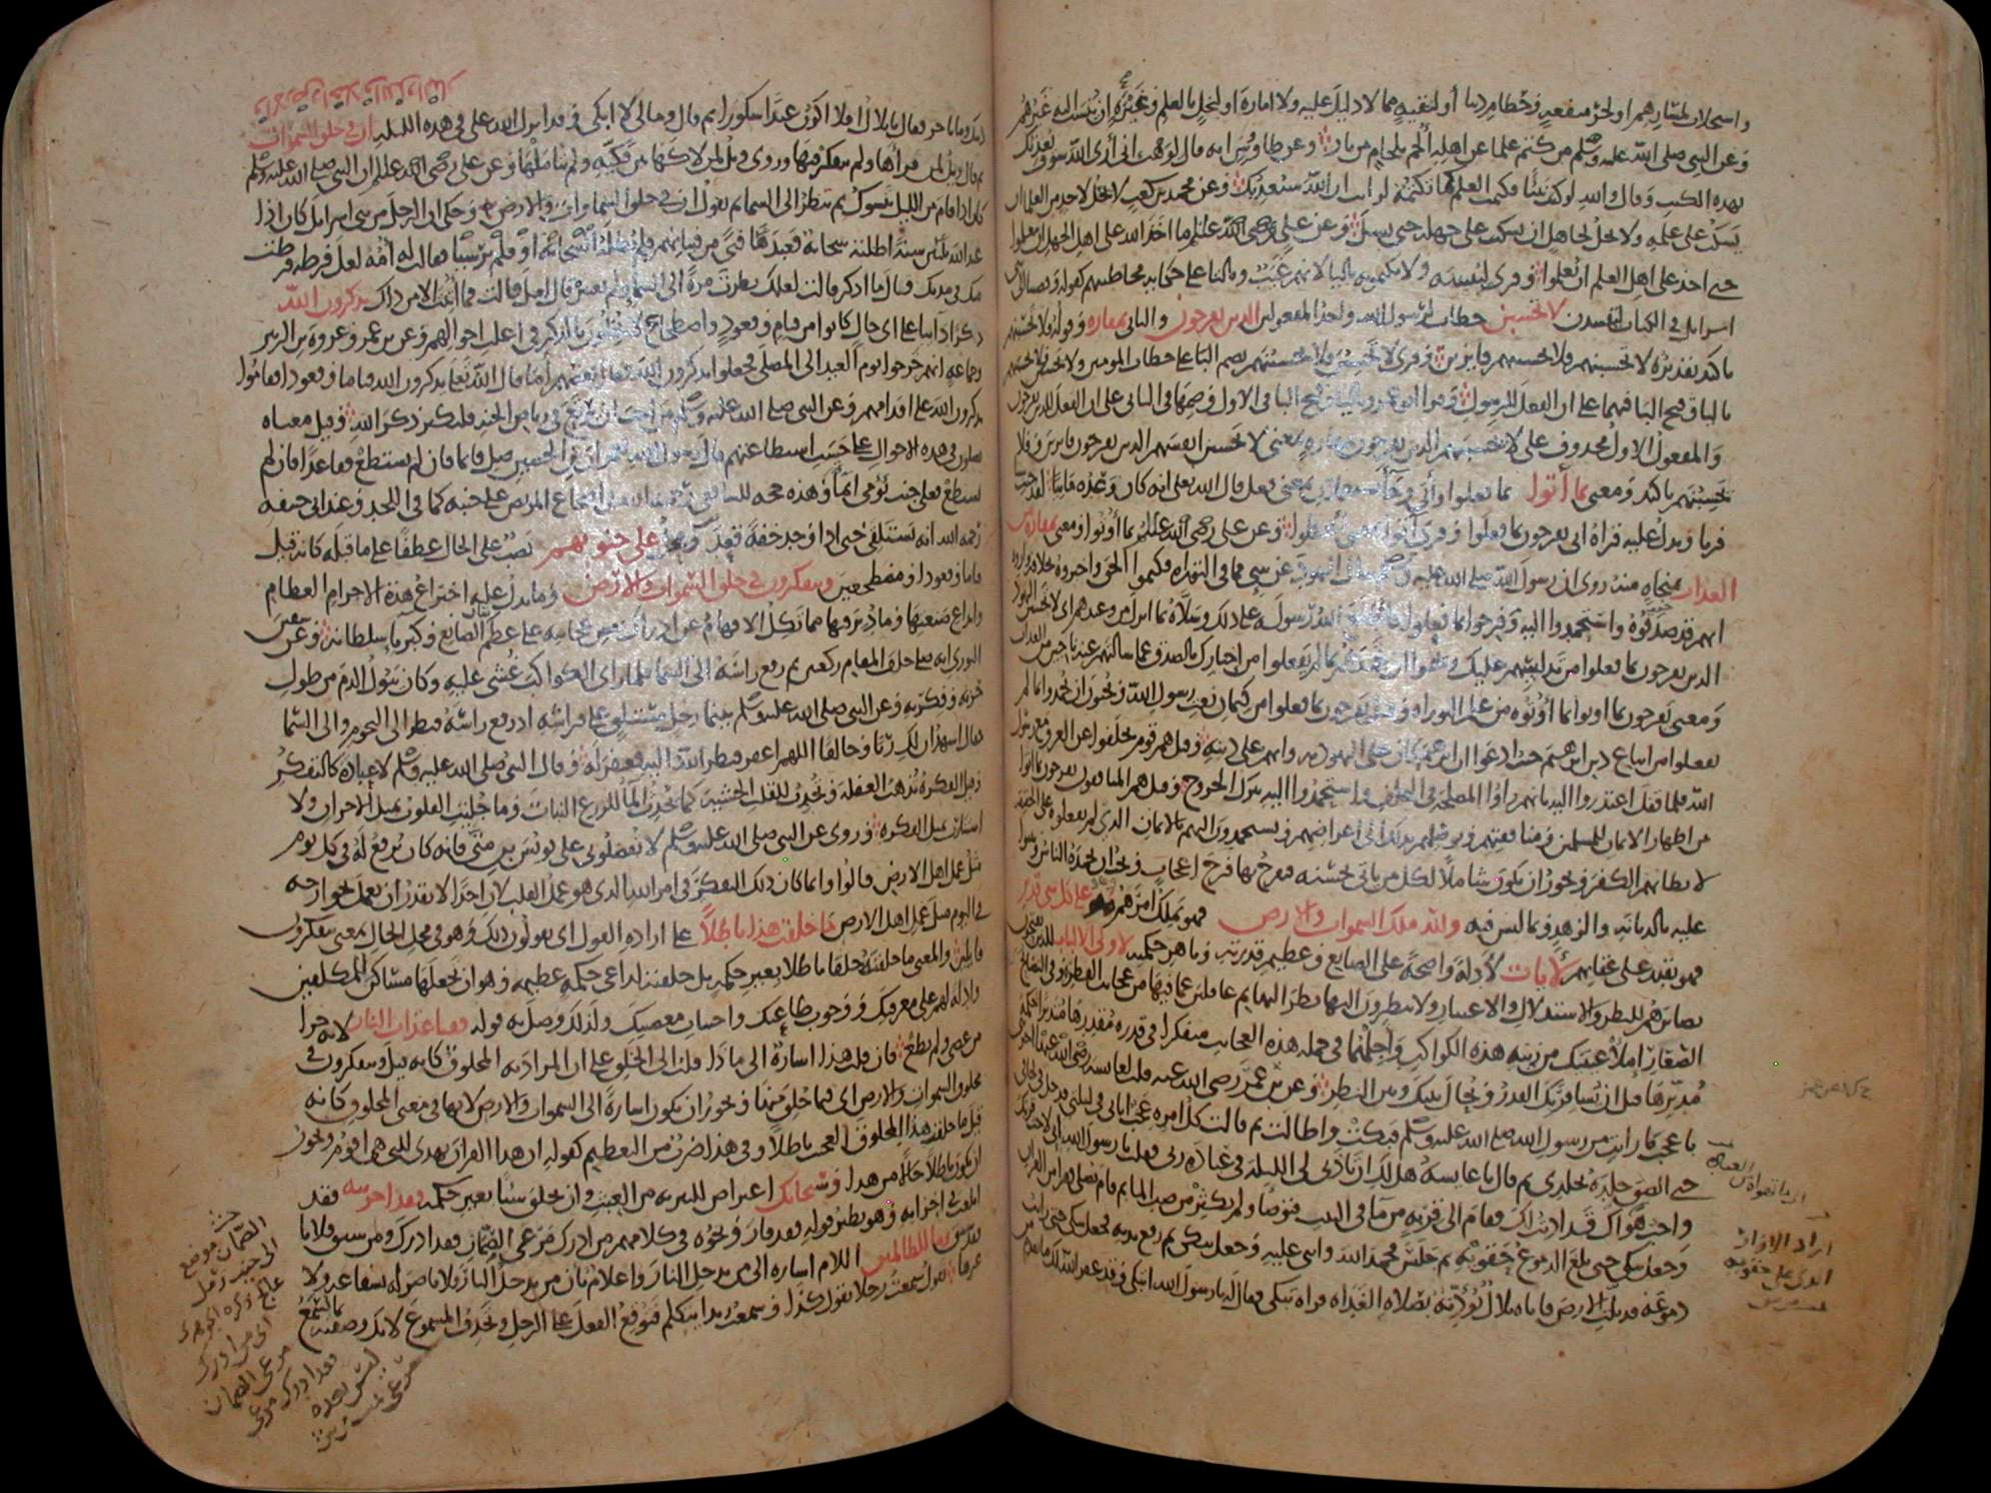 واستجلاب لمسارهم او لجر منفعة وحطام دنيا او لتقية مما لا دليل عليه ولا امارة او لبخل بالعلم وغيرة ان ينسب اليه غيرهم
وعن النبي صلى الله عليه وسلم من كتم علما عن اهله الجم بلجام من نار وعن طاوس انه قال لوهب اني ارى الله سوف يعذبك
بهذه الكتب وقال والله لو كنت نبيا فكتمت العلم كما تكتمه لرايت ان الله سيعذبك وعن محمد بن كعب لا يحل لاحد من العلما ان
يسكت على علمه ولا يحل لجاهل ان يسكت على جهله حتى يسل وعن علي رضي الله عنه ما اخذ الله على اهل الجهل ان يتعلموا
حتى اخذ على اهل العلم ان يعلموا وقرى ليبيننه ولا يكتمونه باليا لانهم غيب وبالتا على حكاية مخاطبتهم كقوله وقضينا الى بني
اسرايل في الكتاب لتفسدن لا تحسبن خطاب لرسول الله واحد المفعولين الذين يفرحون والثاني بمفازة وقوله فلا تحسبنهم
تاكيد تقديره لا تحسبنهم فلا تحسبنهم فايزين وقرى لا تحسبن فلا تحسبنهم بضم البا على خطاب المومنين ولا يحسبن فلا يحسبنهم
باليا وفتح البا فيهما على ان الفعل للرسول وقرا ابو عمرو باليا وفتح البا في الاول وضمها في الثاني على ان الفعل للذين يفرحون
والمفعول الاول محذوف على لا يحسبنهم الذين يفرحون بمفازة بمعنى لا يحسبن انفسهم الذين يفرحون فايزين وفلا
يحسبنهم تاكيد ومعنى بما أتوا بما فعلوا وأتى وجآ يستعملان بمعنى فعل قال الله تعلى انه كان وعده ماتيا لقد جيت شيا
فريا ويدل عليه قراة ابي يفرحون بما فعلوا وقرى آتوا بمعنى اعطوا وعن علي رضي الله عنه بما أوتوا ومعنى بمفازة من
العذاب بمنجاه منه روى ان رسول الله صلى الله عليه وسلم سال اليهود عن شي مما في التوراه فكتموا الحق واخبروه بخلافه واروه
انهم قد صدقوه واستحمدوا اليه وفرحوا بما فعلوا فاطلع الله رسوله على ذلك وسلاه بما انزل من وعيدهم اي لا تحسبن اليهود
الذين يفرحون بما فعلوا من تدليسهم عليك ويحبون ان تحمدهم بما لم يفعلوا من اخبارك بالصدق عما سالتهم عنه ناجين من العذاب
ومعنى يفرحون بما اوتوا بما أوتوه من علم التوراه وقيل يفرحون بما فعلوا من كتمان نعت رسول الله ويحبون ان يحمدوا بما لم
يفعلوا من اتباع دين ابرهيم حيث ادعوا ان ابرهيم كان على اليهوديه وانهم على دينه وقيل هم قوم تخلفوا عن الغزو مع رسول
الله فلما قفل اعتذروا اليه بانهم راوا المصلحه في التخلف واستحمدوا اليه بترك الخروج وقيل هم المنافقون يفرحون بما اتوا
من اظهار الايمان للمسلمين ومنافقتهم وتوصلهم بذلك الى اغراضهم ويستحمدون اليهم بالايمان الذي لم يفعلوه على الحقيقه
لابطانهم الكفر ويجوز ان يكون شاملا لكل من ياتي بحسنه فيفرح بها فرح اعجاب ويحب ان يحمده الناس ويثنوا
عليه بالديانه والزهد وبما ليس فيه ولله ملك السموات والارض فهو يملك امرهم وهو على كل شي قدير
فهو يقدر على عقابهم لآيات لأدلة واضحة على الصانع وعظيم قدرته وباهر حكمته لاولي الالباب للذين يفتحون
بصائرهم للنظر والاستدلال والاعتبار ولا ينظرون اليها نظر البهايم غافلين عما فيها من عجايب الفطر وفي النصايح
الصغار املأ عينيك من زينة هذه الكواكب وأجلهما في جملة هذه العجايب متفكرا في قدرة مقدرها متدبرا حكمة
مدبرها قبل ان يسافر بك القدر ويحال بينك وبين النظر وعن بن عمر رضي الله عنه قلت لعايشه رضي الله عنها اخبريني
باعجب ما رايت من رسول الله صلى الله عليه وسلم فبكت واطالت ثم قالت كل امره عجب اتاني في ليلتي فدخل في لحافي
حتى الصق جلده بجلدي ثم قال يا عايشة هل لك ان تاذني لي الليلة في عبادة ربي فقلت يا رسول الله اني لاحب قربك
واحب هواك قد اذنت لك فقام الى قربة من مآ في البيت فتوضا ولم يكثر من صب الما ثم قام يصلي فقرا من القران
وجعل يبكي حتى بلغ الدموع حقويه ثم جلس فحمد الله واثنى عليه وجعل يبكي ثم رفع يديه فجعل يبكي حتى رايت
دموعه قد بلت الارض فاتاه بلال يؤذنه بصلاة الغداه فراه يبكي فقال له يا رسول الله اتبكي وقد غفر الله لك ما تقدم من
ذنبك وما تاخر فقال يا بلال افلا اكون عبدا شكورا ثم قال ومالي لا ابكي وقد انزل الله علي في هذه الليله ان في خلق السموات
والارض واختلاف الليل والنهار
ثم قال ويل لمن قراها ولم يتفكر فيها وروى ويل لمن لاكها بين فكيه ولم يتاملها وعن علي رضي الله عنه ان النبي صلى الله عليه وسلم
كان اذا قام من الليل يتسوك ثم ينظر الى السما ثم يقول ان في خلق السماوات والارض وحكي ان الرجل من بني اسرايل كان اذا
عبد الله ثلثين سنة اظلته سحابة فعبدها فتى من فتيانهم فلم تظله فقالت له أمه لعل فرطة فرطت
منك في مدتك فقال ما اذكر قالت لعلك نظرت مرة الى السما ولم تعتبر قال لعل قالت فما أتيت الا من ذاك يذكرون الله
ذكرا دايبا على اي حال كانوا من قيام وقعود واضطجاع لا يخلون بالذكر في اغلب احوالهم وعن بن عمر وعروة بن الزبير
وجماعة انهم خرجوا يوم العيد الى المصلى فجعلوا يذكرون الله فقال بعضهم أما قال الله تعالى يذكرون الله قياما وقعودا فقاموا
يذكرون الله على اقدامهم وعن النبي صلى الله عليه وسلم من احب ان يرتع في رياض الجنه فليكثر ذكر الله وقيل معناه
يصلون في هذه الاحوال على حسب استطاعتهم قال رسول الله لعمران بن الحصين صل قايما فان لم تستطع فقاعدا فان لم
تستطع فعلى جنب تؤمي ايمآ وهذه حجه للشافعي رحمه الله في اضجاع المريض على جنبه كما في اللحد وعند ابي حنيفه
رحمه الله انه يستلقي حتى اذا وجد خفة قعد ومحل على جنوبهم نصب على الحال عطفا على ما قبله كانه قيل
قياما وقعودا ومضطجعين ويتفكرون في خلق السموات والارض وما يدل عليه اختراع هذه الاجرام العظام
وابداع صنعتها وما دبر فيها مما تكل الافهام عن ادراك بعض عجايبه على عظم شان الصانع وكبريا سلطانه وعن سفين
الثوري انه صلى خلف المقام ركعتين ثم رفع راسه الى السما فلما راى الكواكب غشي عليه وكان يبول الدم من طول
حزنه وفكرته وعن النبي صلى الله عليه وسلم بينما رجل مستلق على فراشه اذ رفع راسه فنظر الى النجوم والى السما
فقال اشهد ان لك ربا وخالقا اللهم اغفر لي فنظر الله اليه فغفر له وقال النبي صلى الله عليه وسلم لا عبادة كالتفكر
وقيل الفكرة تذهب الغفلة وتحدث للقلب الخشية كما يحدث المآ للزرع النبات وما جليت القلوب بمثل الاحزان ولا
استنارت بمثل الفكره وروى عن النبي صلى الله عليه وسلم لا تفضلوني على يونس بن متى فانه كان يرفع له في كل يوم
مثل عمل اهل الارض قالوا وانما كان ذلك التفكر في امر الله الذي هو عمل القلب لان احدا لا يقدر ان يعمل بجوارحه
في اليوم مثل عمل اهل الارض ما خلقت هذا باطلا على ارادة القول اي يقولون ذلك وهو في محل الحال بمعنى يتفكرون
قايلين والمعنى ما خلقته خلقا باطلا بغير حكمة بل خلقته لداعي حكمة عظيمه وهو ان تجعلها مساكن للمكلفين
وادلة لهم على معرفتك ووجوب طاعتك واجتناب معصيتك ولذلك وصل به قوله فقنا عذاب النار لانه جزا
من عصى ولم يطع فان قلت هذا اشارة الى ماذا قلت الى الخلق على ان المراد به المخلوق كانه قيل ويتفكرون في
مخلوق السموات والارض اي فيما خلق منها ويجوز ان يكون اشارة الى السموات والارض لانها في معنى المخلوق كانه
قيل ما خلقت هذا المخلوق العجب باطلا وفي هذا ضرب من التعظيم كقوله ان هذا القران يهدي للتي هي اقوم ويجوز
ان يكون باطلا حالا من هذا وسبحانك اعتراض للتنزيه من العبث وان يخلق شيا بغير حكمة فقد اخزيته فقد
ابلغت في اخزايه وهو نظير قوله فقد فاز ونحوه في كلامهم من ادرك مرعى الصمان فقد ادرك ومن سبق فلانا
فقد سبق وما للظالمين اللام اشارة الى من يدخل النار واعلام بان من يدخل النار فلا ناصر له بشفاعة ولا
غيرها تقول سمعت رجلا يقول كذا وسمعت زيدا يتكلم فتوقع الفعل على الرجل وتحذف المسموع لانك وصفته بما يسمع